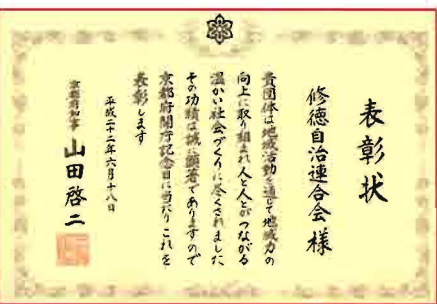 表彰状
修徳自治連合会 様
貴団体は地域活動を通じて地域力の
向上に取り組まれ人と人とがつながる
温かい社会づくりに尽くされました
その功績は誠に顕著でありますので
京都府開庁記念日に当たりこれを
表彰します
平成二十二年六月十八日
京都府知事 山田啓二